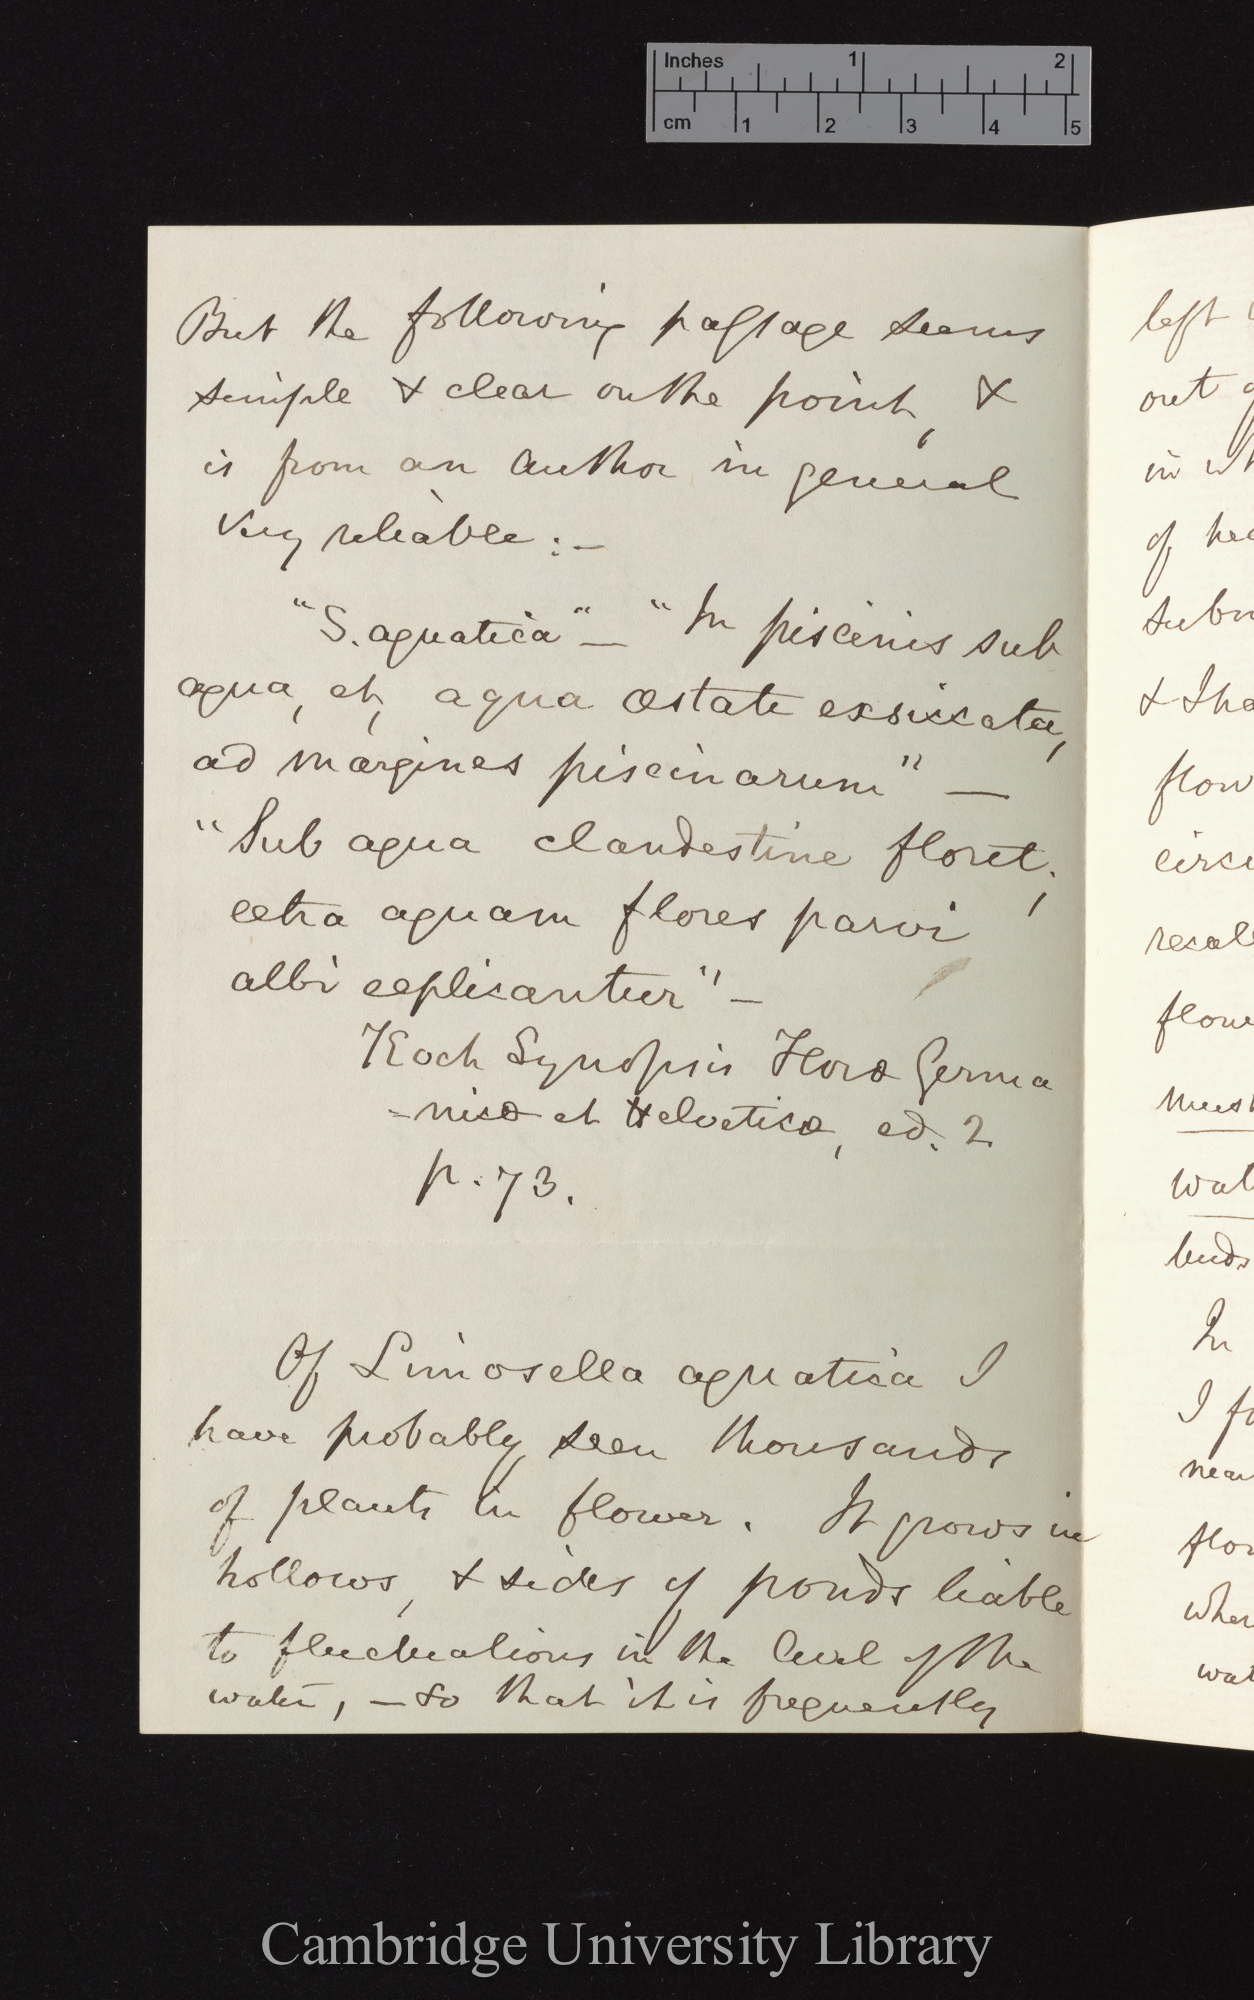 Inches 1 2
cm 1 2 3 4 5
But the following passage seems
simple & clear on the point, &
is from an author in general
very reliable :—
"S. aquatica" — "In piscinis sub
aqua, et, aqua æstate exsiccata,
ad margines piscinarum" —
"Sub aqua clandestine floret;
extra aquam flores parvi
albi explicantur" —
Koch Synopsis Floræ Germa
-nicæ et Helveticæ, ed. 2
p. 73.
Of Limosella aquatica I
have probably seen thousands
of plants in flower. It grows in
hollows, & sides of ponds liable
to fluctuations in the level of the
water, — so that it is frequently
left
out
in
of
& I
must
buds
In
I
Cambridge University Library